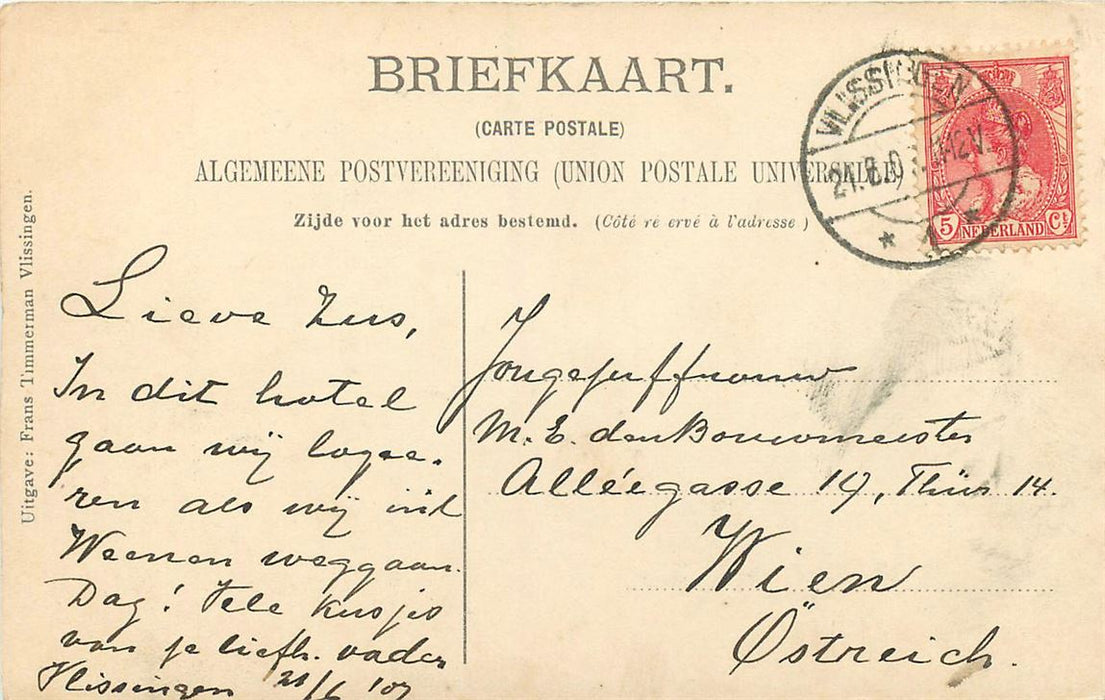 BRIEFKAART.
(CARTE POSTALE)
ALGEMEENE POSTVEREENIGING (UNION POSTALE UNIVERSELLE)
Zijde voor het adres bestemd. (Côté ré ervé à l'adresse)
VLISSINGEN
5 NEDERLAND Ct
Uitgave: Frans Timmerman Vlissingen.
Lieve Zus,
In dit hotel
gaan wij logee-
ren als wij uit
Weenen weggaan.
Dag! Vele kusjes
van je liefh. vader
Vlissingen 21/6 '07
Jongejuffrouw
M. E. den Bouwmeester
Alléegasse 19, Thür 14.
Wien
Östreich.